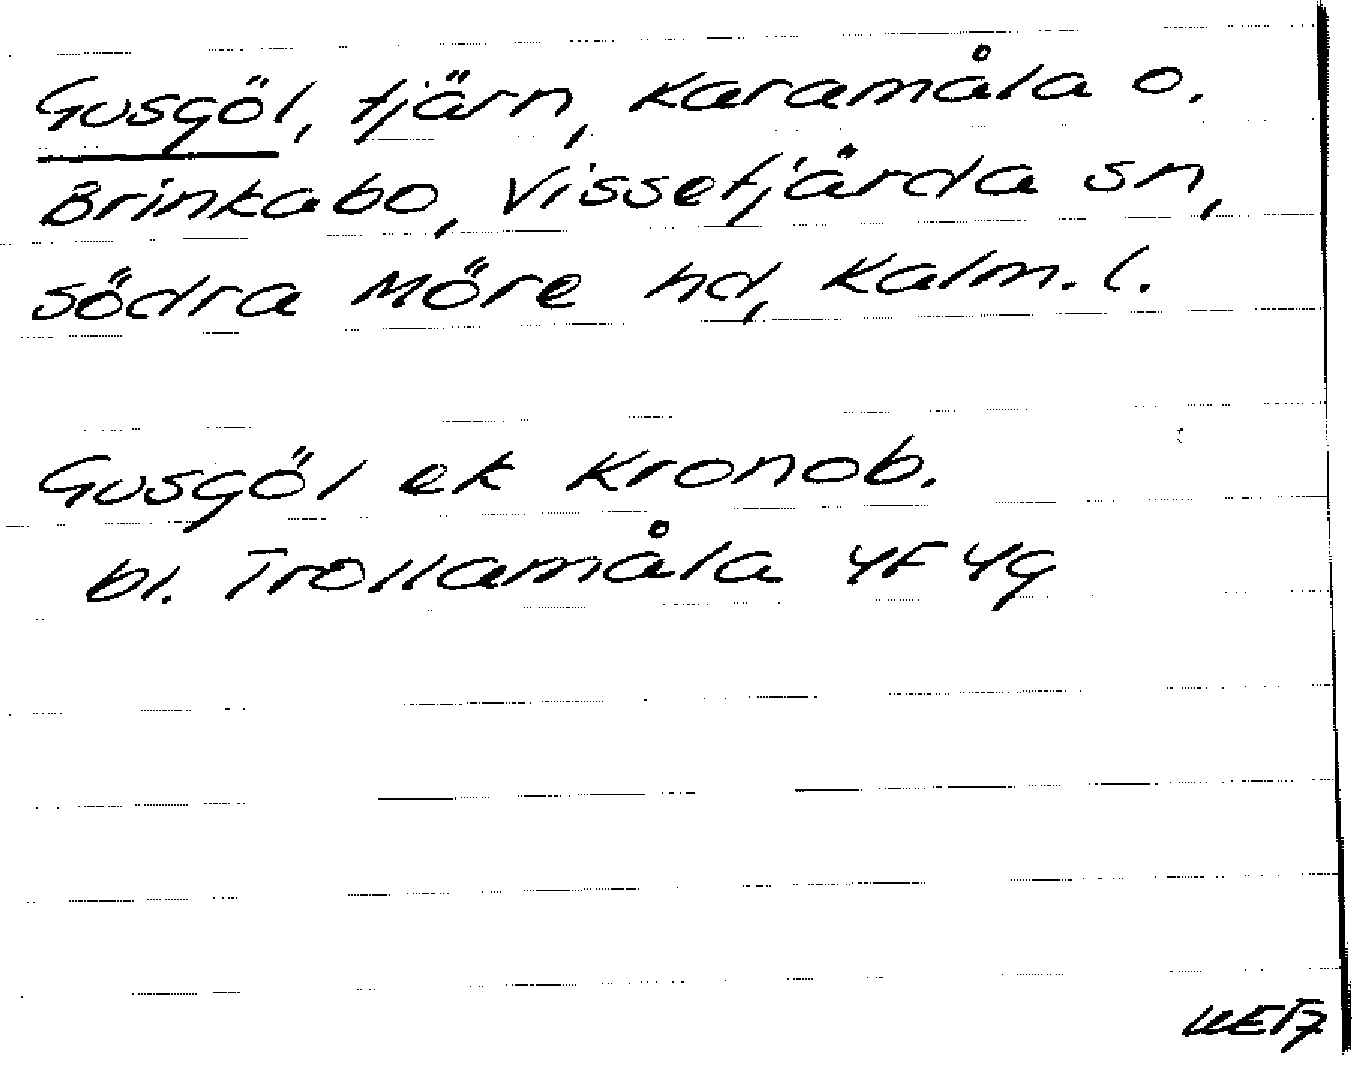 Gusgöl, tjärn, Karamåla o.
Brinkabo, Vissefjärda sn,
södra Möre hd, Kalm. l.
Gusgöl ek Kronob.
bl. Trollamåla 4F 4g